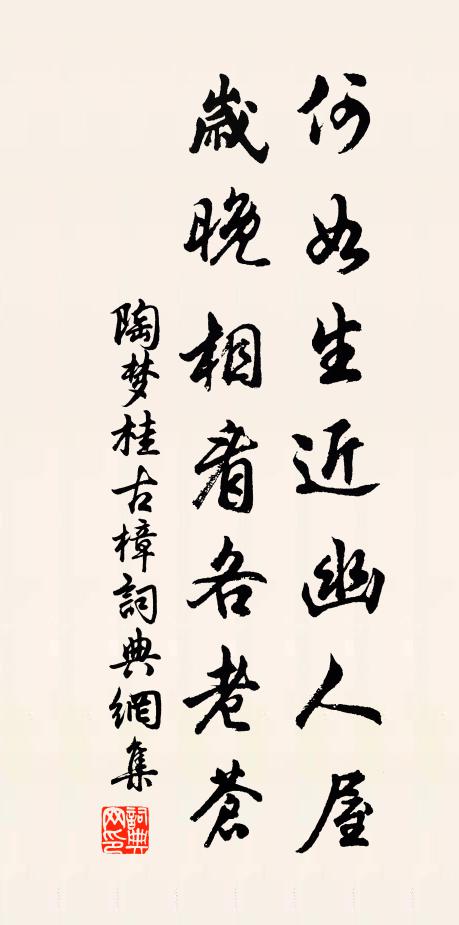 何如生近幽人屋
歲晚相看各老蒼
陶梦桂古樟詞典網集
詞典网印